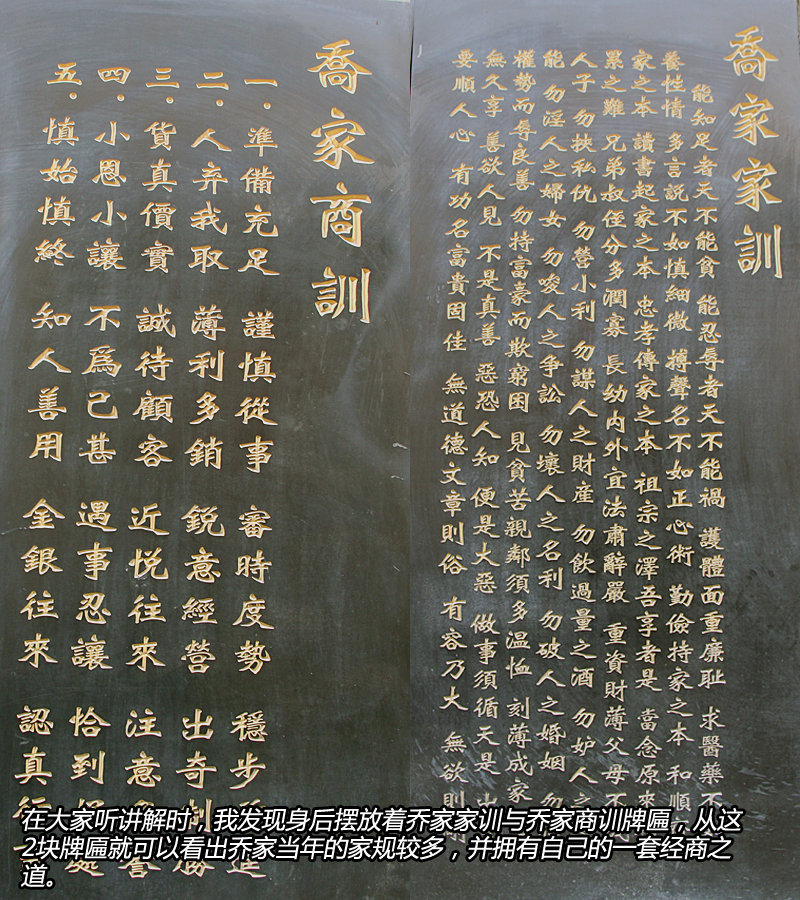 喬家家訓
能知足者天不能貧 能忍辱者天不能禍 護體面重廉耻 求醫藥不
養性情 多言説不如慎細微 搏聲名不如正心術 勤儉持家之本 和順
家之本 讀書起家之本 忠孝傳家之本 祖宗之澤吾享者是 當念原來
累之難 兄弟叔侄分多潤寡 長幼内外宜法肅辭嚴 重資財薄父母不
人子 勿挾私仇 勿營小利 勿謀人之財産 勿飲過量之酒 勿妒人之
能 勿淫人之婦女 勿唆人之争訟 勿壞人之名利 勿破人之婚姻 勿
權勢而辱良善 勿持富豪而欺窮困 見貧苦親鄰須多温恤 刻薄成家
無久享 善欲人見 不是真善 惡恐人知 便是大惡 做事須循天是 出
要順人心 有功名富貴固佳 無道德文章則俗 有容乃大 無欲則
喬家商訓
一. 準備充足 謹慎從事 審時度勢 穩步
二. 人弃我取 薄利多銷 鋭意經營 出奇制勝
三. 貨真價實 誠待顧客 近悦往來 注意
四. 小恩小讓 不爲己甚 遇事忍讓 恰到
五. 慎始慎終 知人善用 金銀往來 認真行
在大家听讲解时，我发现身后摆放着乔家家训与乔家商训牌匾，从这
2块牌匾就可以看出乔家当年的家规较多，并拥有自己的一套经商之
道。